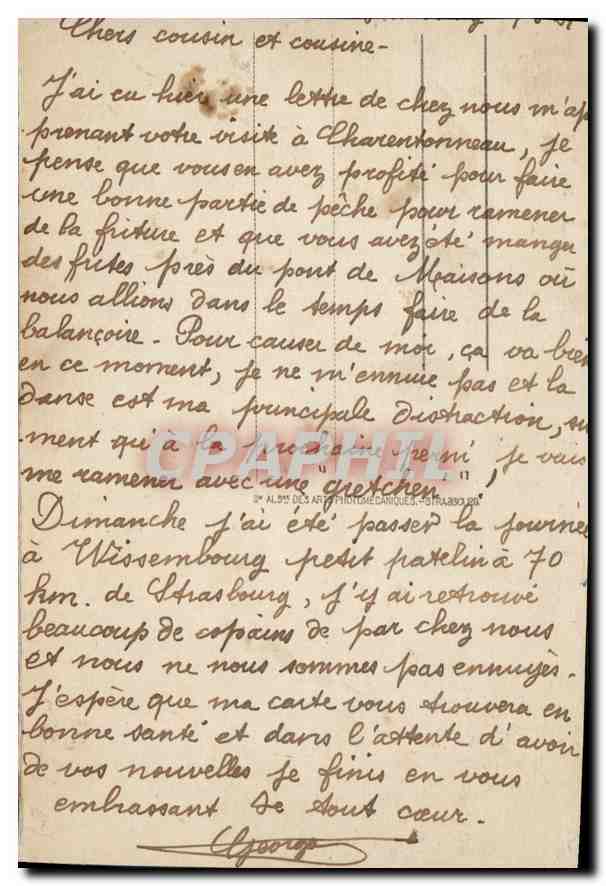 Chers cousin et cousine -
J'ai eu hier une lettre de chez nous m'ap
prenant votre visite à Charentonneau, je
pense que vous en avez profité pour faire
une bonne partie de pêche pour ramener
de la friture et que vous avez été manger
des frites près du pont de Maisons où
nous allions dans le temps faire de la
balançoire - Pour causer de moi, ça va bien
en ce moment, je ne m'ennuie pas et la
danse est ma principale distraction,
ment qu'à la prochaine perm' je vais
me ramener avec une "gretchen",
CPAPHIL
Sté ALSne DES ARTS PHOTOMÉCANIQUES. - STRASBOURG.
Dimanche j'ai été passer la journée
à Wissembourg petit patelin à 70
km. de Strasbourg, j'y ai retrouvé
beaucoup de copains de par chez nous
et nous ne nous sommes pas ennuyés.
J'espère que ma carte vous trouvera en
bonne santé et dans l'attente d'avoir
de vos nouvelles je finis en vous
embrassant de tout cœur.